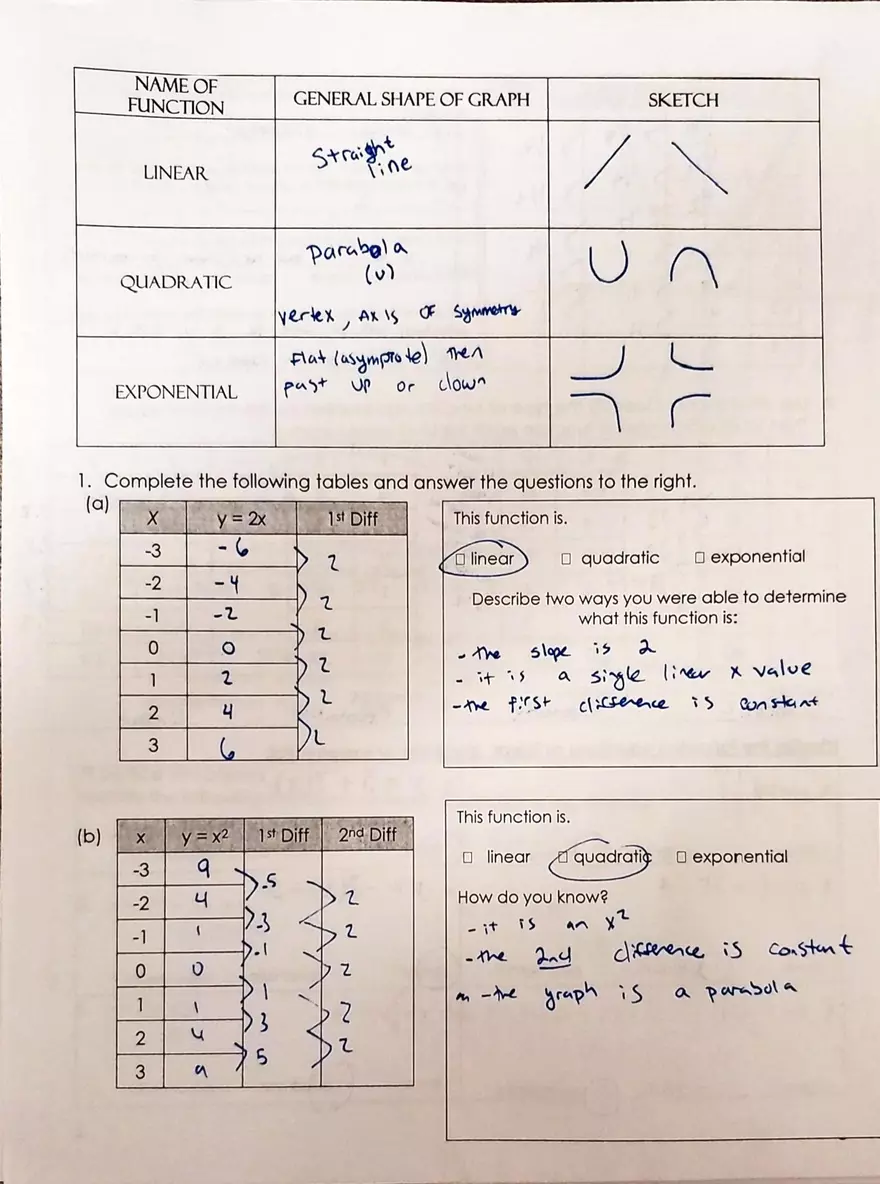 NAME OF
FUNCTION
GENERAL SHAPE OF GRAPH
SKETCH
LINEAR
Straight
line
QUADRATIC
Parabola
(U)
vertex, Axis of symmetry
EXPONENTIAL
Flat (asymprote) Then
past up or down
1. Complete the following tables and answer the questions to the right.
(a)
X y = 2x 1st Diff
-3 -6
2
-2 -4
2
-1 -2
2
0 0
2
1 2
2
2 4
2
3 6
This function is.
☐ linear ☐ quadratic ☐ exponential
Describe two ways you were able to determine
what this function is:
- the slope is 2
- it is a single linear x value
- the first difference is constant
(b)
x y = x² 1st Diff 2nd Diff
-3 9
-5
-2 4 2
-3
-1 1 2
-1
0 0 2
1
1 1
3 2
2 4
5 2
3 9
This function is.
☐ linear ☐ quadratic ☐ exponential
How do you know?
- it is an x²
- the 2nd difference is constant
- the graph is a parabola